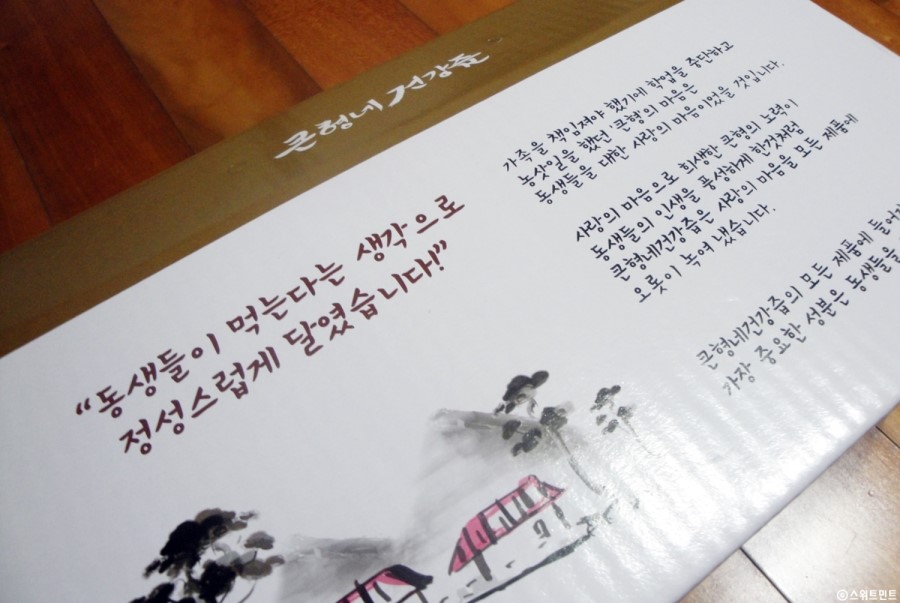 큰형네 건강즙
“동생들이 먹는다는 생각으로
정성스럽게 달였습니다!”
가족을 책임져야 했기에 학업을 중단하고
농삿일을 했던 큰형의 마음은
동생들을 대한 사랑의 마음이었을 것입니다.
사랑의 마음으로 희생한 큰형의 노력이
동생들의 인생을 풍성하게 한것처럼
큰형네건강즙은 사랑의 마음을 모든 제품에
오롯이 녹여 냈습니다.
큰형네건강즙의 모든 제품에 들어가
가장 중요한 성분은 동생들을
@스위트민트